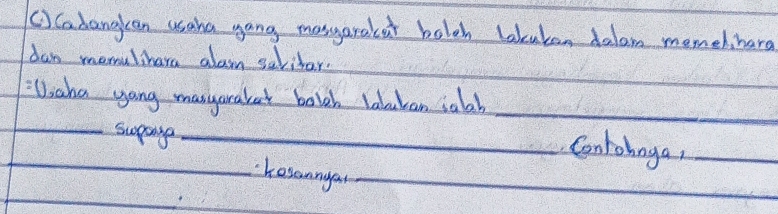 (c) Cadangkan usaha yang masyarakat boleh lakukan dalam memelihara
dan memulihara alam sekitar.
= Usaha yang masyarakat boleh lakukan ialah ___
___ supaya ___ . Contohnya, ___
___ . kesannya, ___